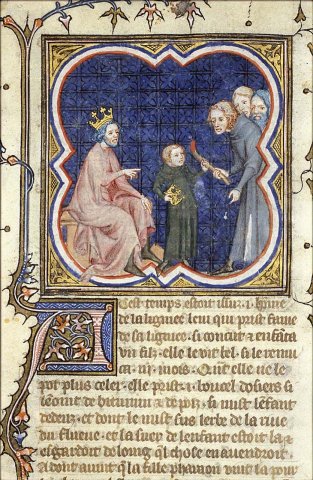 cest temps estoit issu .i. home
de la lignee leui qui prist fame
de sa lignee. si concut & enfata
un filz. elle le vit bel. si le reput
.iii. mois. Quant elle ne le
pot plus celer. elle prist .i.
de bitumi & de poiz. si mist lenfant
dedenz. & dont le mist sus lerbe de la riue
du flueue. & sa suer de lenfant estoit la &
esgardoit de loing que chose en auendroit
& dont auint que la fille pharaon vint la pour